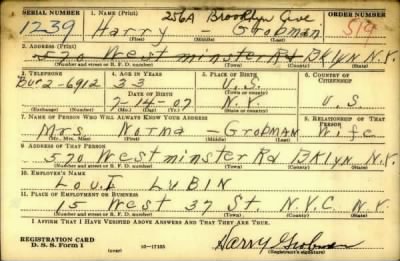 SERIAL NUMBER 1. NAME (Print) 256A Brooklyn Ave ORDER NUMBER
1239 Harry - Grobman 519
(First) (Middle) (Last)
2. ADDRESS (Print)
570 Westminster Rd BKlyn N.Y.
(Number and street or R. F. D. number) (Town) (County) (State)
3. TELEPHONE 4. AGE IN YEARS 5. PLACE OF BIRTH 6. COUNTRY OF CITIZENSHIP
BUC 2-6912 33 U.S.
DATE OF BIRTH (Town or county)
7-14-07 N.Y. U.S.
(Exchange) (No.) (Mo.) (Day) (Yr.) (State or country)
7. NAME OF PERSON WHO WILL ALWAYS KNOW YOUR ADDRESS 8. RELATIONSHIP OF THAT PERSON
Mrs Norma - Grobman Wife
(Mr., Mrs., Miss) (First) (Middle) (Last)
9. ADDRESS OF THAT PERSON
570 Westminster Rd BKlyn N.Y.
(Number and street or R. F. D. number) (Town) (County) (State)
10. EMPLOYER'S NAME
Loui Lubin
11. PLACE OF EMPLOYMENT OR BUSINESS
15 West 37 St. N.Y.C. N.Y.
(Number and street or R. F. D. number) (Town) (County) (State)
I AFFIRM THAT I HAVE VERIFIED ABOVE ANSWERS AND THAT THEY ARE TRUE.
REGISTRATION CARD
D. S. S. Form 1 (over) 16-17105 Harry Grobman
(Registrant's signature)